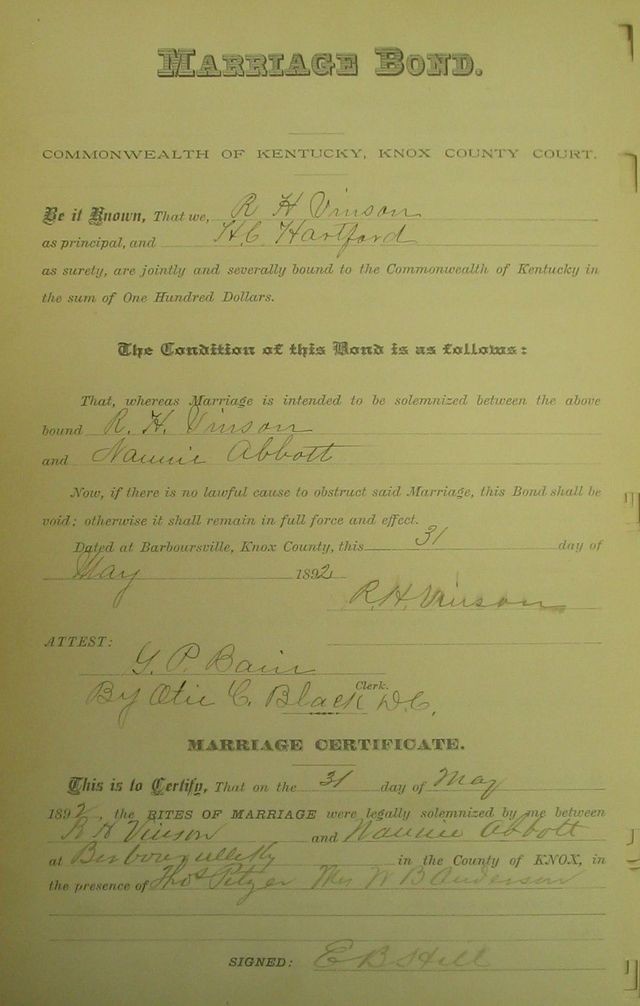 MARRIAGE BOND.
COMMONWEALTH OF KENTUCKY, KNOX COUNTY COURT.
Be it Known, That we, R H Vinson
as principal, and H.C. Hartford
as surety, are jointly and severally bound to the Commonwealth of Kentucky in
the sum of One Hundred Dollars.
The Condition of this Bond is as follows:
That, whereas Marriage is intended to be solemnized between the above
bound R. H. Vinson
and Nannie Abbott
Now, if there is no lawful cause to obstruct said Marriage, this Bond shall be
void; otherwise it shall remain in full force and effect.
Dated at Barboursville, Knox County, this 31 day of
May 1892
R. H. Vinson
ATTEST:
G. P. Bain
Clerk.
By Otie C. Black D.C.
MARRIAGE CERTIFICATE.
This is to Certify, That on the 31 day of May
1892, the RITES OF MARRIAGE were legally solemnized by me between
R H Vinson and Nannie Abbott
at in the County of KNOX, in
the presence of Thos Pitzer Mrs W B Anderson
SIGNED: E B Hill